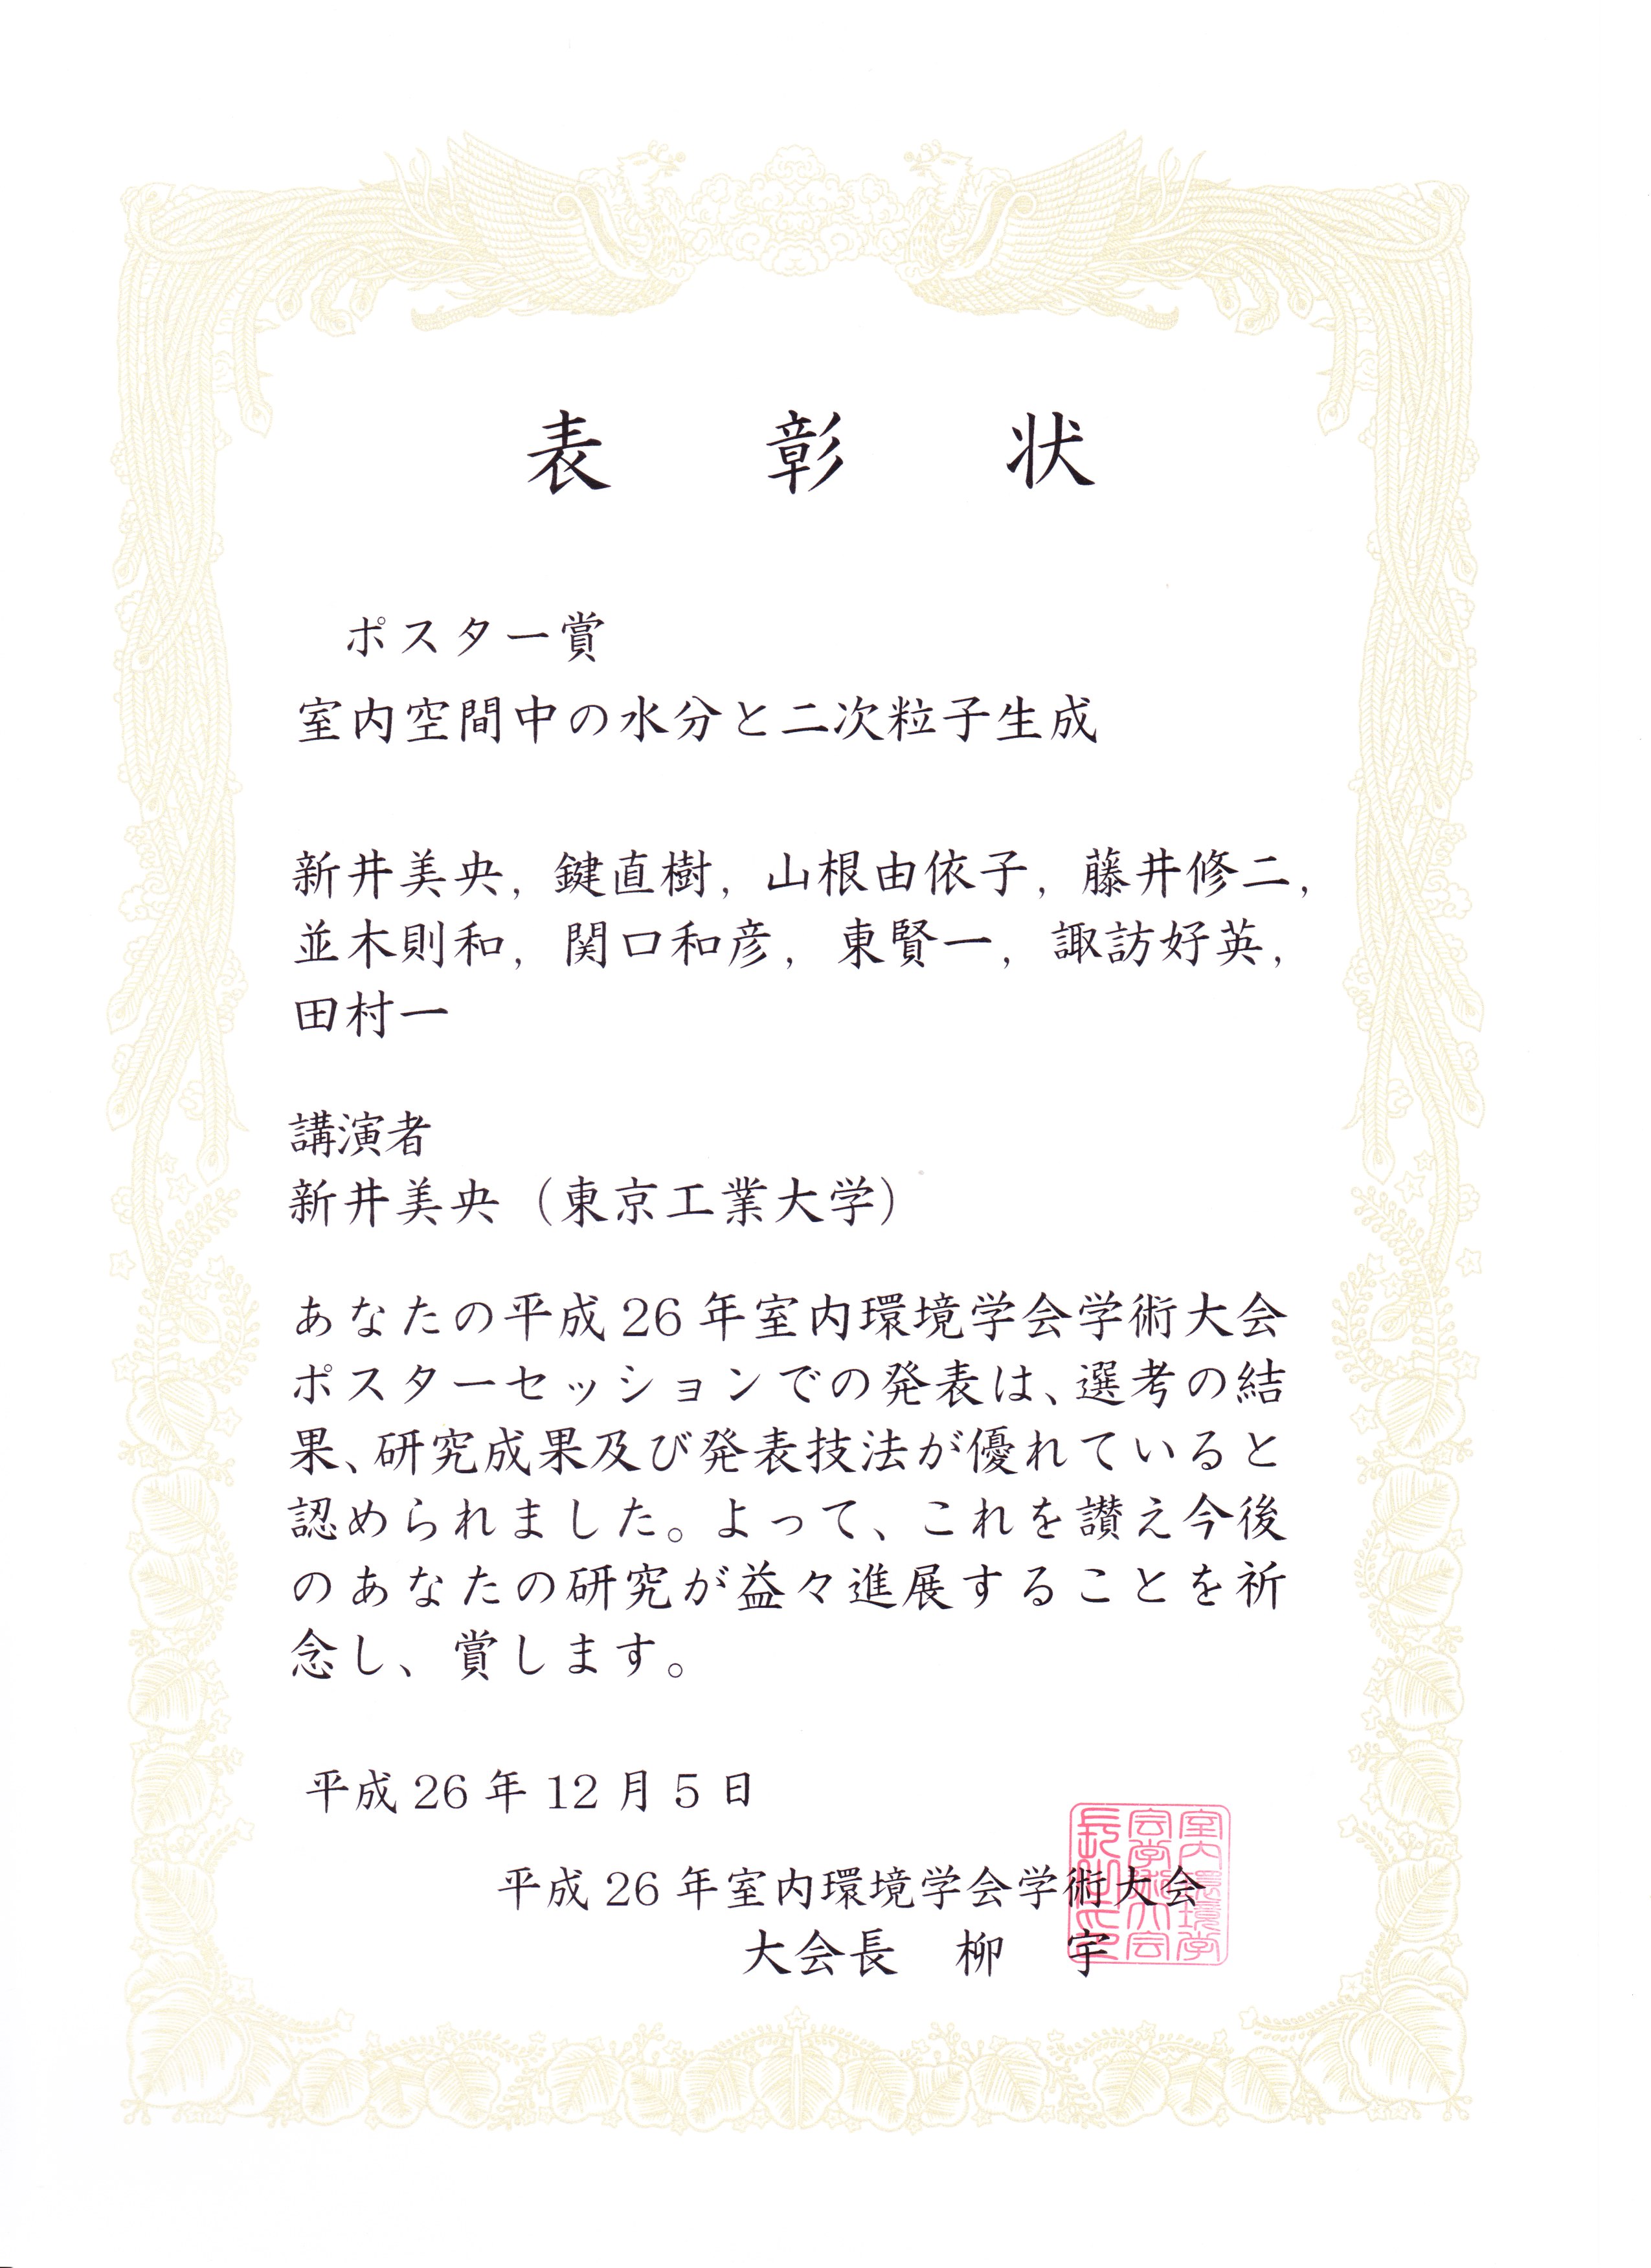 表彰状
ポスター賞
室内空間中の水分と二次粒子生成
新井美央, 鍵直樹, 山根由依子, 藤井修二,
並木則和, 関口和彦, 東賢一, 諏訪好英,
田村一
講演者
新井美央（東京工業大学）
あなたの平成26年室内環境学会学術大会
ポスターセッションでの発表は、選考の結
果、研究成果及び発表技法が優れていると
認められました。よって、これを讃え今後
のあなたの研究が益々進展することを祈
念し、賞します。
平成26年12月5日
平成26年室内環境学会学術大会
大会長 柳 宇
室内環境学
会学術大会
長之印